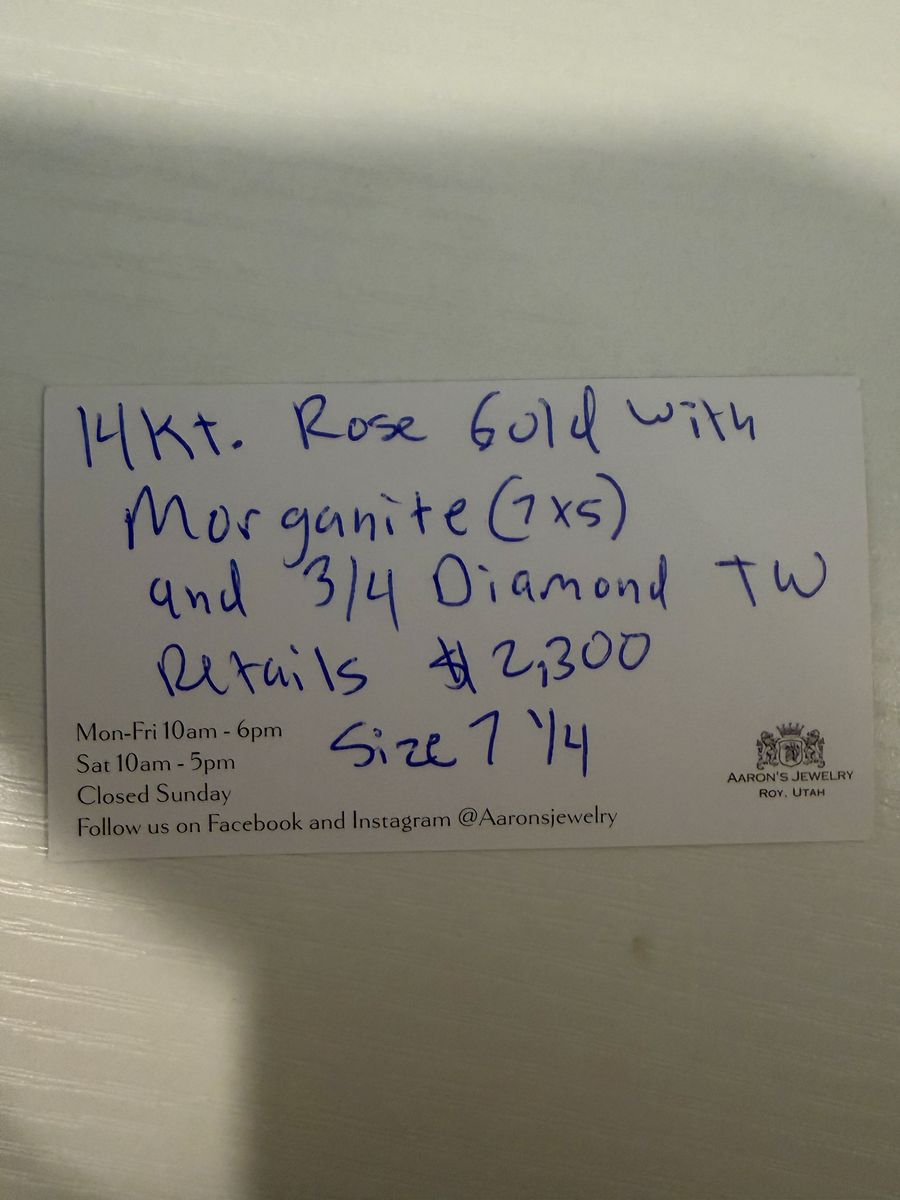 14Kt. Rose Gold with
Morganite (7x5)
and 3/4 Diamond TW
Retails $2,300
Size 7 1/4
Mon-Fri 10am - 6pm
Sat 10am - 5pm
Closed Sunday
Follow us on Facebook and Instagram @Aaronsjewelry
AARON'S JEWELRY
ROY, UTAH